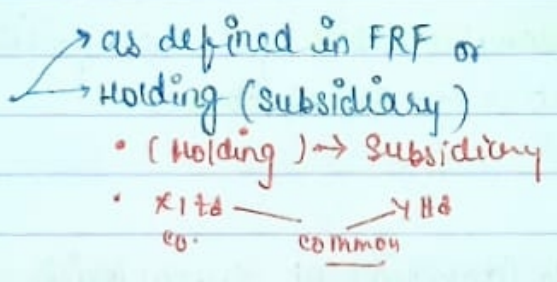 → as defined in FRF or
→ Holding (subsidiary)
• (Holding) → Subsidiary
• X ltd — Y ltd
co. common